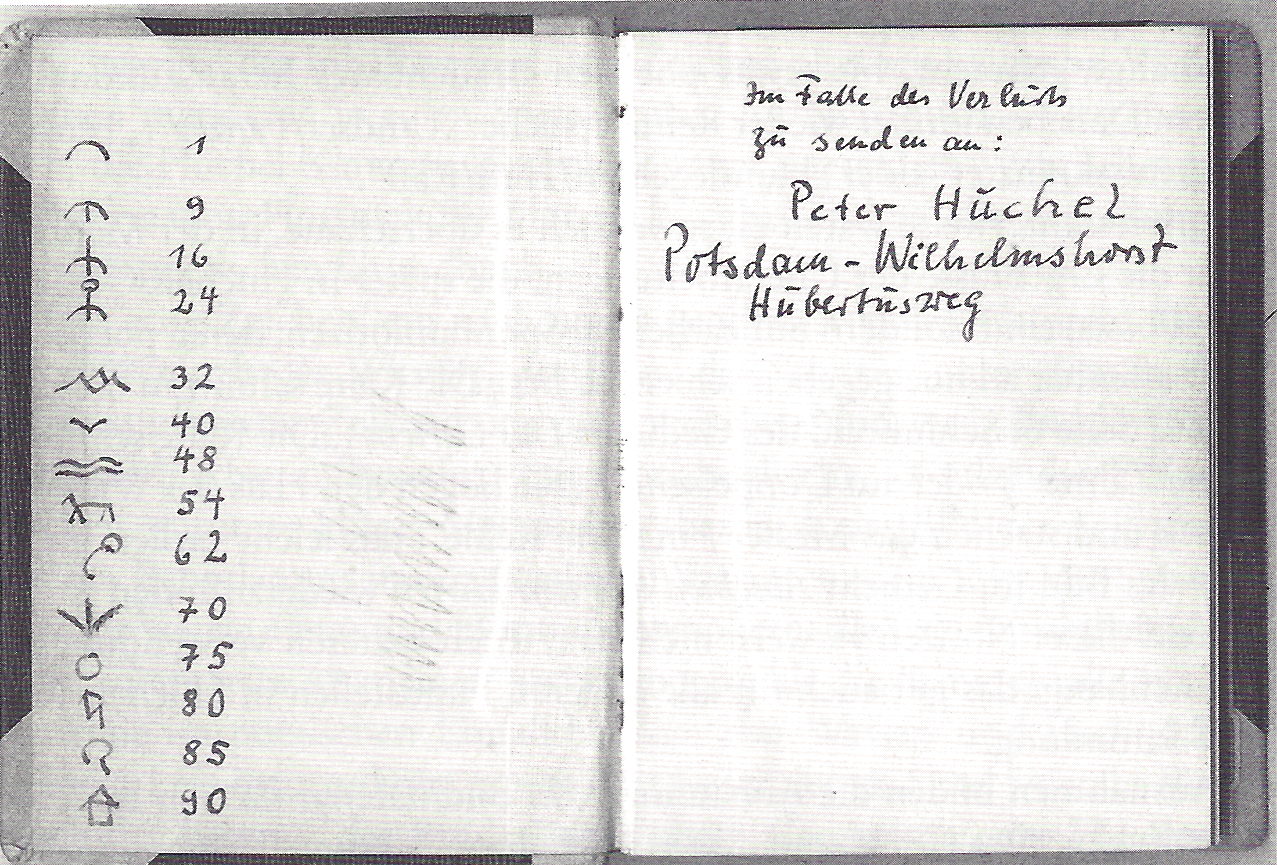 1
9
16
24
32
40
48
54
62
70
75
80
85
90
Im Falle des Verlusts
zu senden an:
Peter Huchel
Potsdam - Wilhelmshorst
Hubertusweg